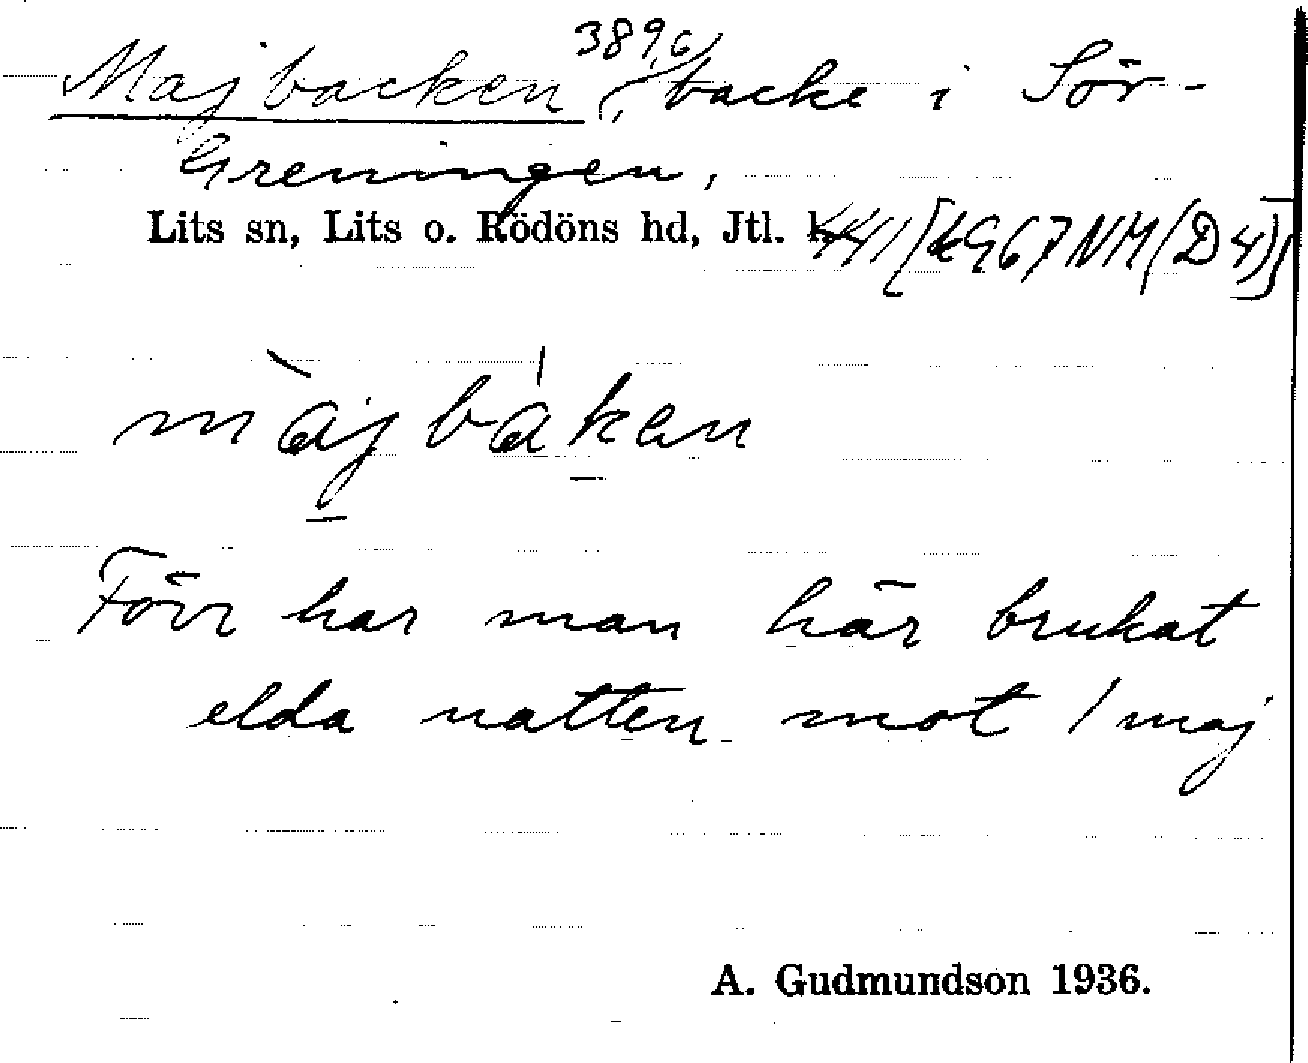 Majbacken 389,6/, backe i Sör-
Greningen,
Lits sn, Lits o. Rödöns hd, Jtl. l. 441[k967NM(D4)]
màjbákan
Förr har man här brukat
elda natten mot 1 maj
A. Gudmundson 1936.